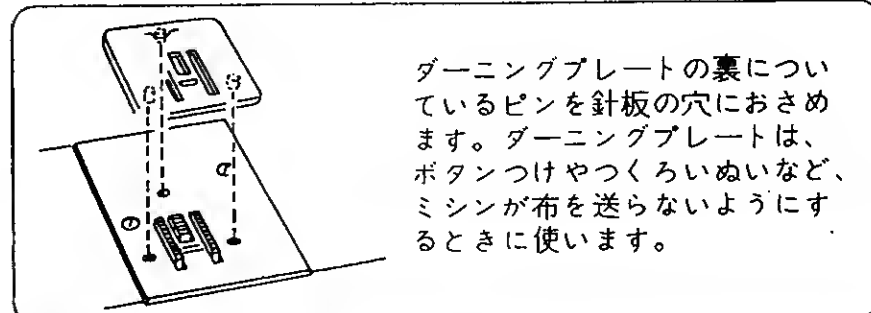 ダーニングプレートの裏につい
ているピンを針板の穴におさめ
ます。ダーニングプレートは、
ボタンつけやつくろいぬいなど、
ミシンが布を送らないようにす
るときに使います。